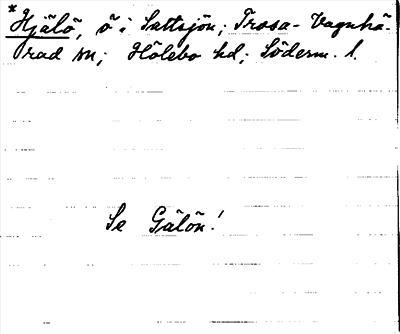 *Hjälö, ö i Sattsjön, Trosa-Vagnhä-
rad sn; Hölebo hd; Söderm. l.
Se Gälön!